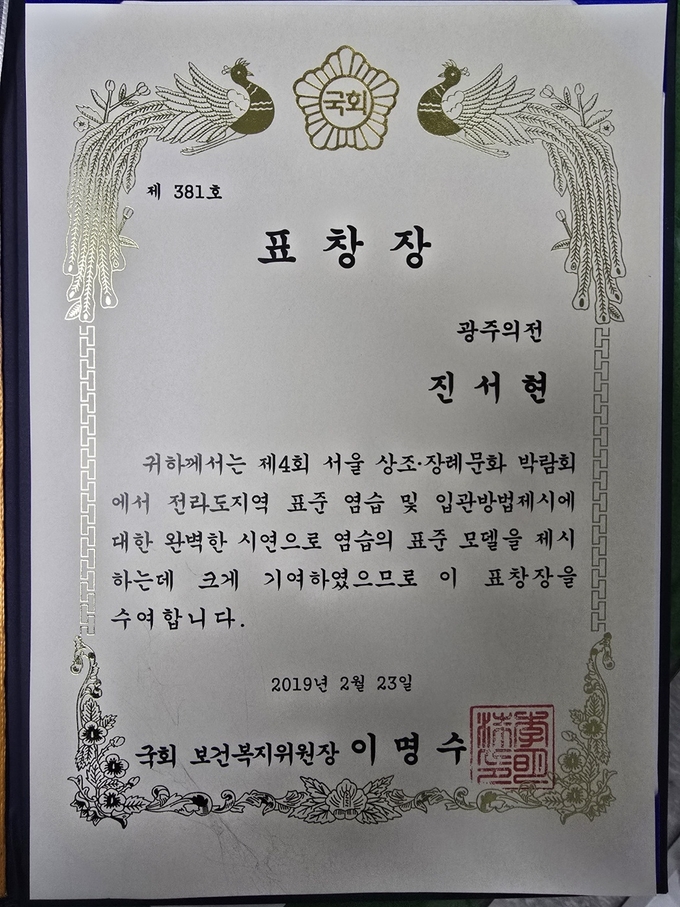 국회
제 381호
표 창 장
광주의전
진 서 현
귀하께서는 제4회 서울 상조·장례문화 박람회
에서 전라도지역 표준 염습 및 입관방법제시에
대한 완벽한 시연으로 염습의 표준 모델을 제시
하는데 크게 기여하였으므로 이 표창장을
수여합니다.
2019년 2월 23일
국회 보건복지위원장 이 명 수